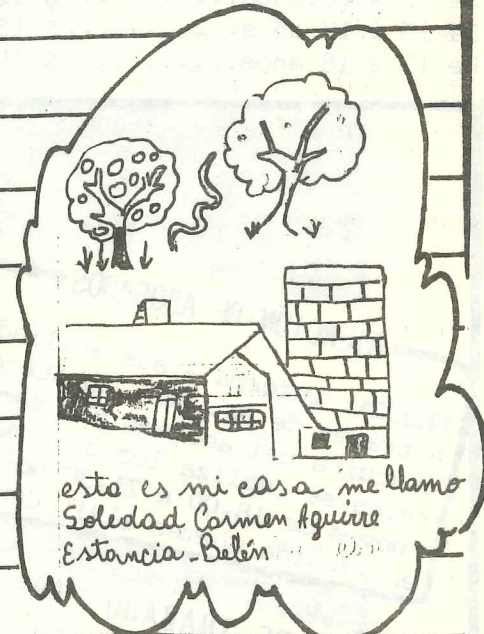 esta es mi casa me llamo
Soledad Carmen Aguirre
Estancia-Belén